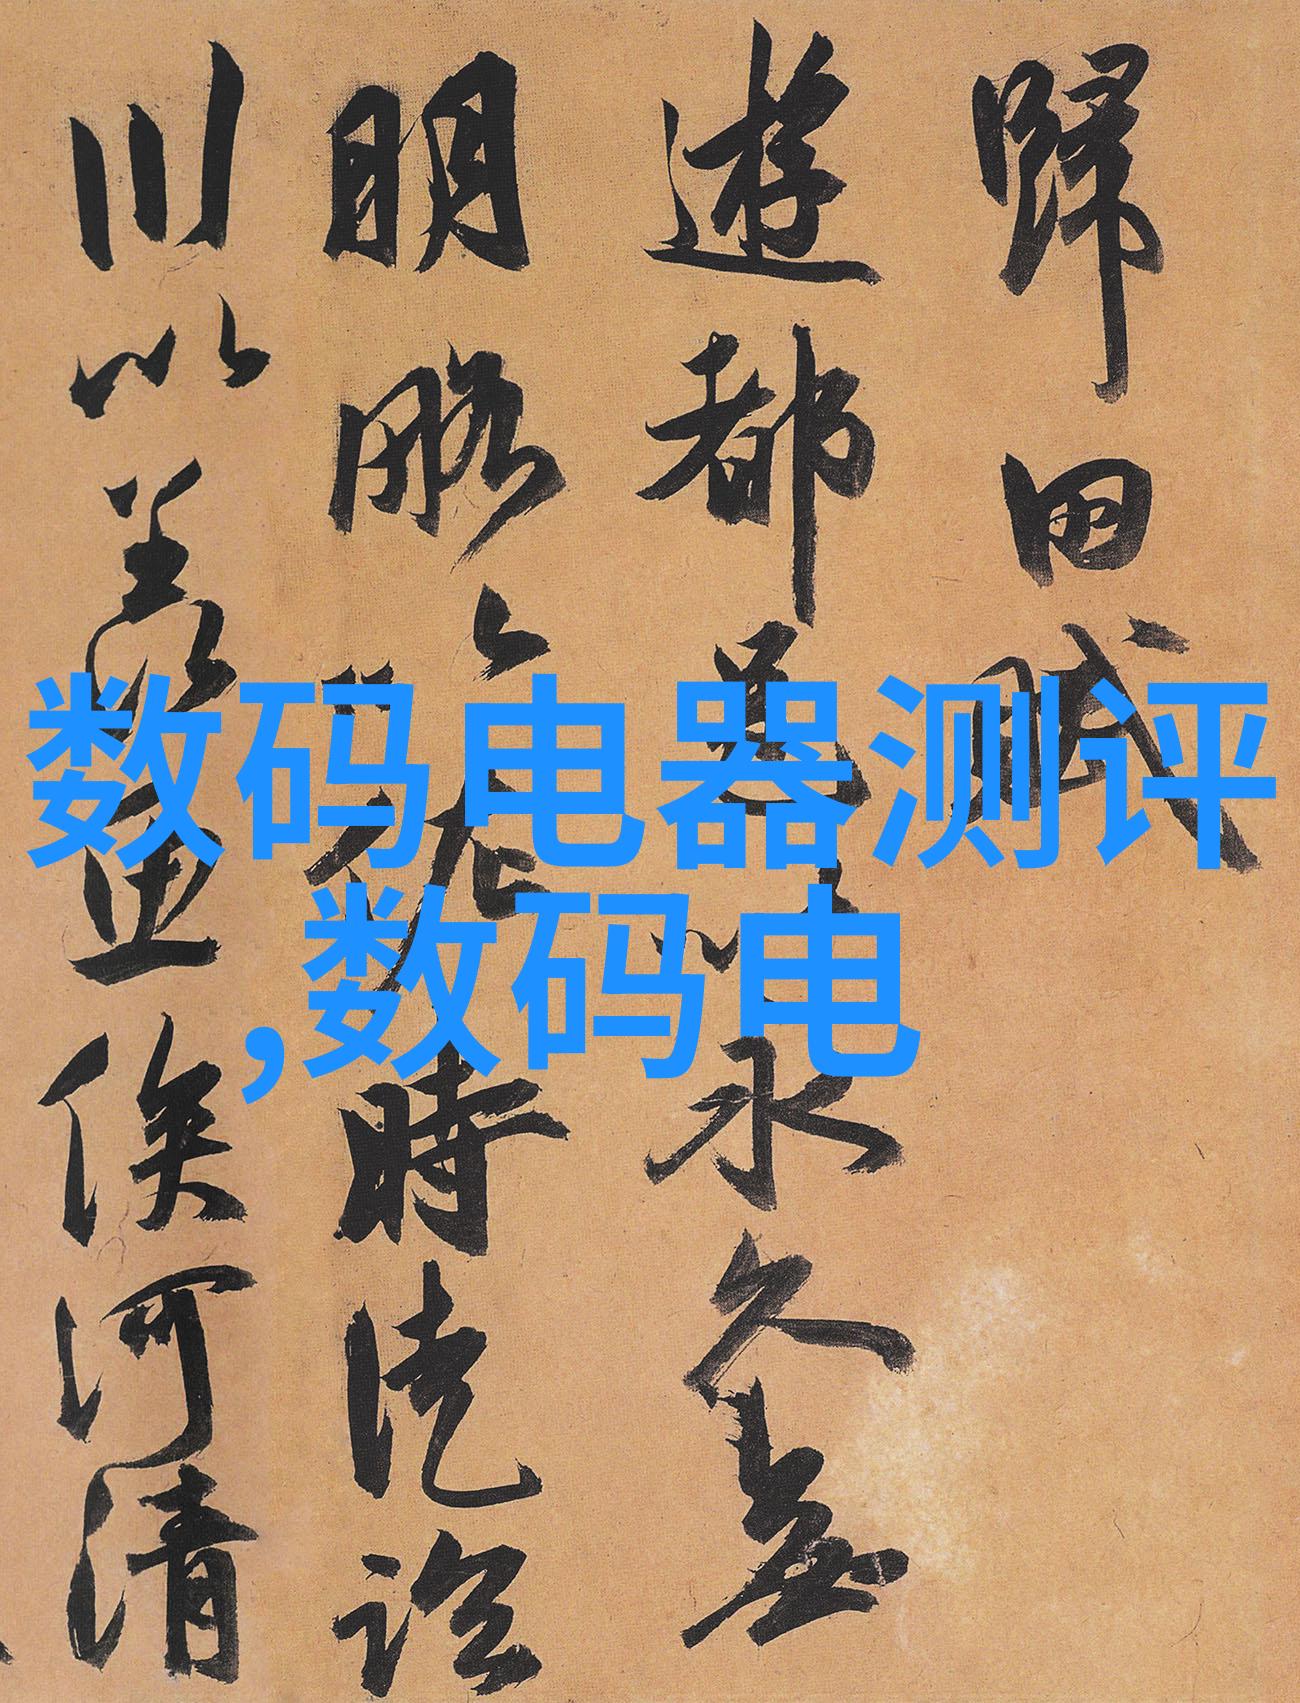 歸田賦
遊都邑以永久無
明略以佐時徒臨
川以羨魚俟河清
数码电器测评
,数码电